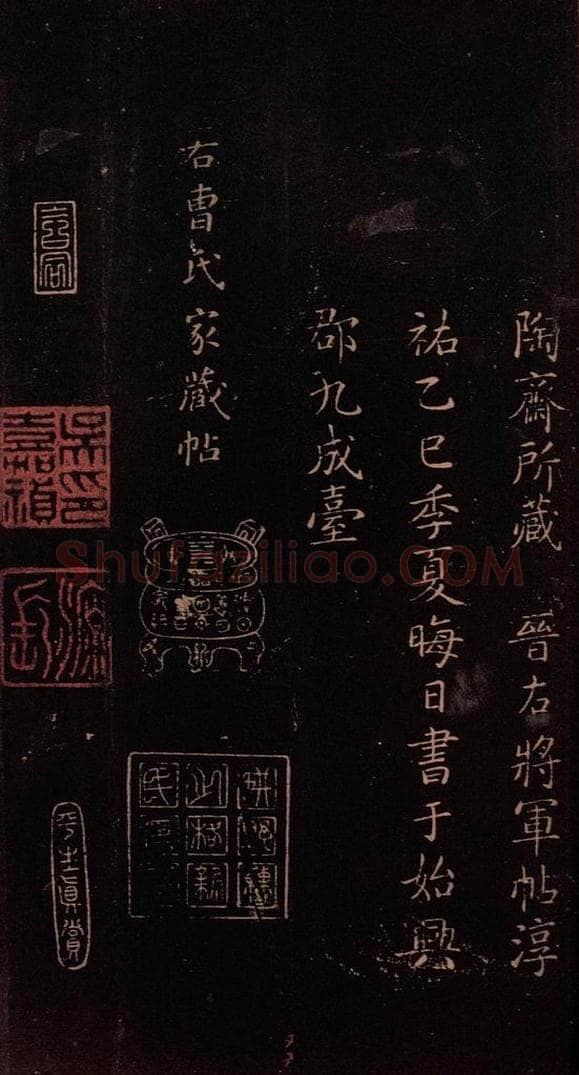 陶齋所藏 晉右將軍帖淳
祐乙巳季夏晦日書于始興
郡九成臺
右曹氏家藏帖
吳氏
嘉穎
平生真賞
Shufaziliao.COM